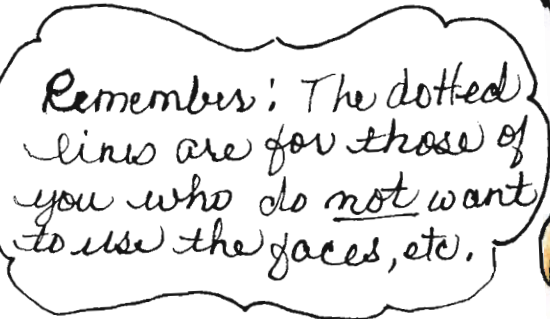 Remember: The dotted
lines are for those of
you who do not want
to use the faces, etc.